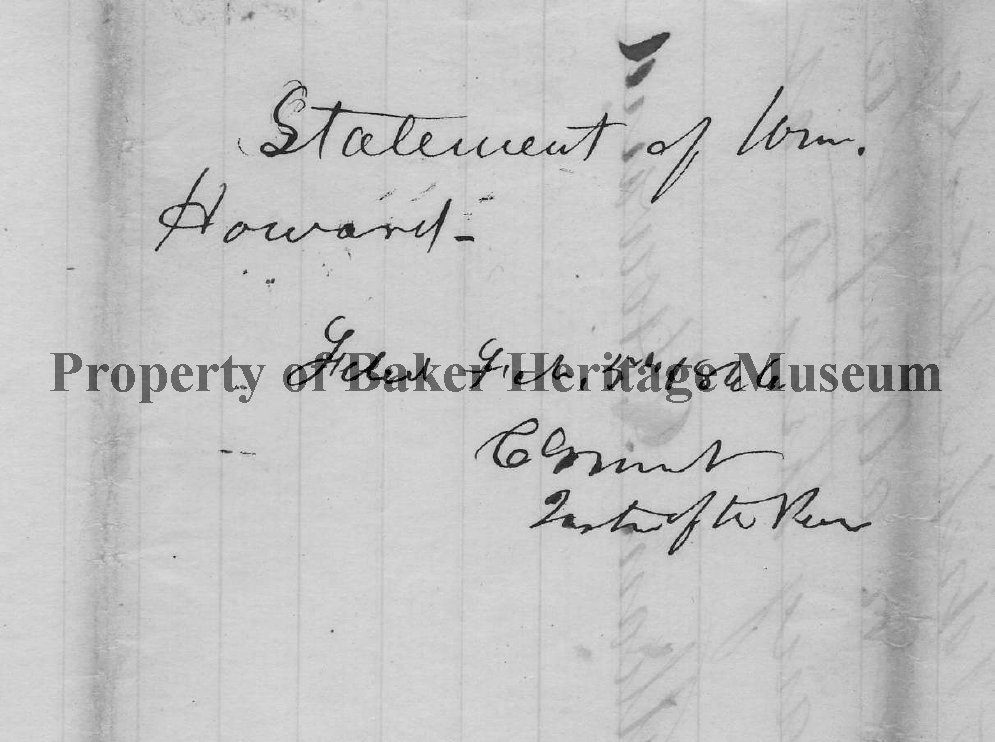 Statement of Wm.
Howard-
Filed Feb. 5th 1866
Property of Baker Heritage Museum
Justice of the Peace